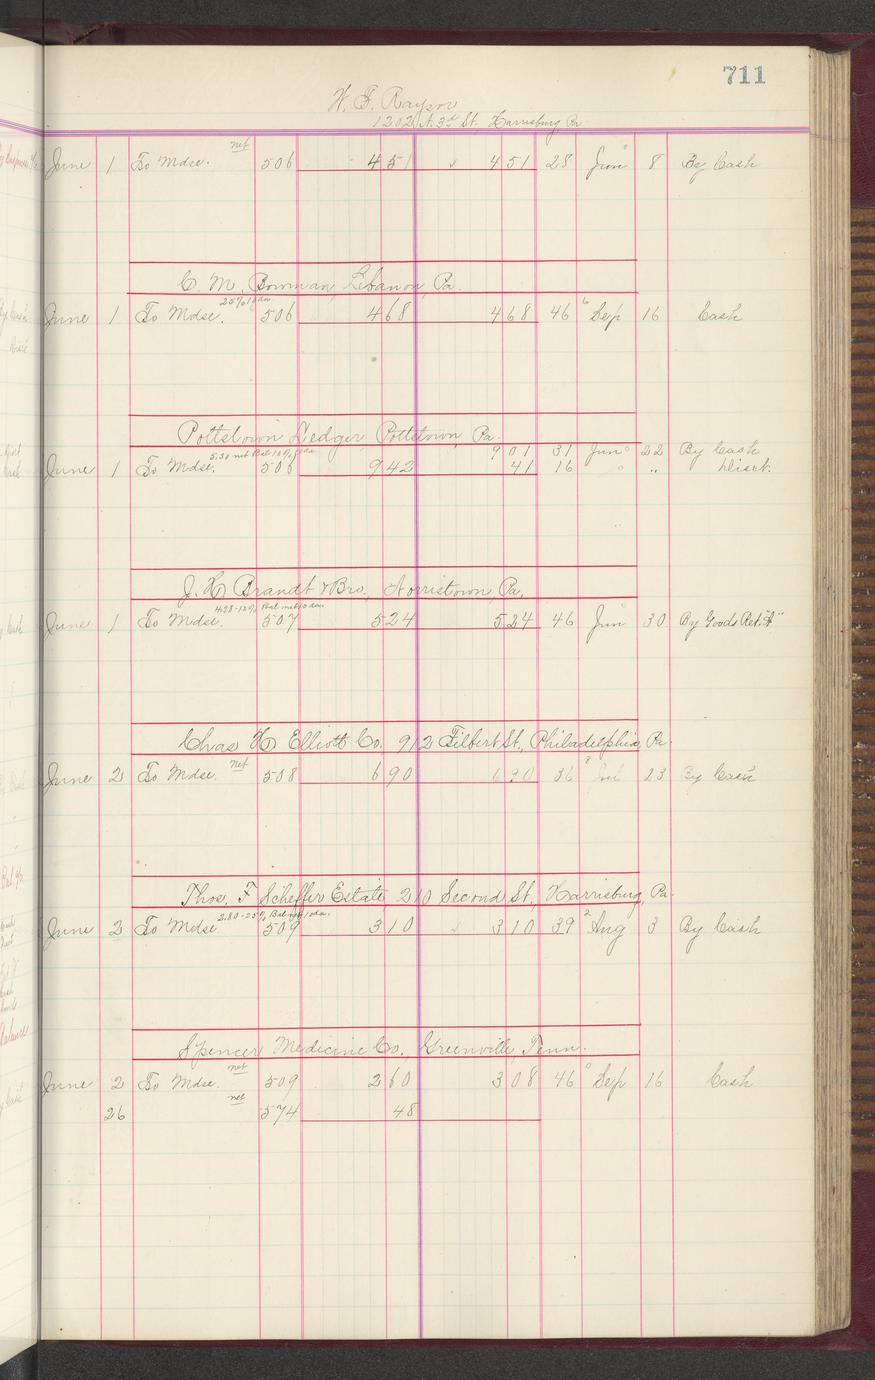 711
W. F. Raysor
1202 N. 3rd St. Harrisburg Pa
net
June 1 To Mdse. 506 4 51 4 51 28 Jun 8 By Cash
C. M. Bowman, Lebanon, Pa.
25% 10 da
June 1 To Mdse. 506 4 68 4 68 46 Sep 16 Cash
Pottstown Ledger, Pottstown, Pa.
5.30 net Bal 10% da 9 01 31 Jun 22 By Cash
June 1 To Mdse. 506 9 42 41 16 " " Disct.
J. H. Brandt & Bro., Norristown, Pa.
Bal net 10 da.
June 1 To Mdse. 507 5 24 5 24 46 Jun 30 By Goods Ret. "A"
Chas H Elliott Co. 912 Filbert St., Philadelphia, Pa.
net
June 2 To Mdse. 508 6 90 6 90 36 Jul 23 By Cash
Thos. F Scheffer Estate 210 Second St., Harrisburg, Pa.
2.80-25% Bal net 10 da.
June 2 To Mdse. 509 3 10 3 10 39 Aug 3 By Cash
Spencer Medicine Co., Greenville, Tenn.
net
June 2 To Mdse. 509 2 60 3 08 46 Sep 16 Cash
net
26 574 48